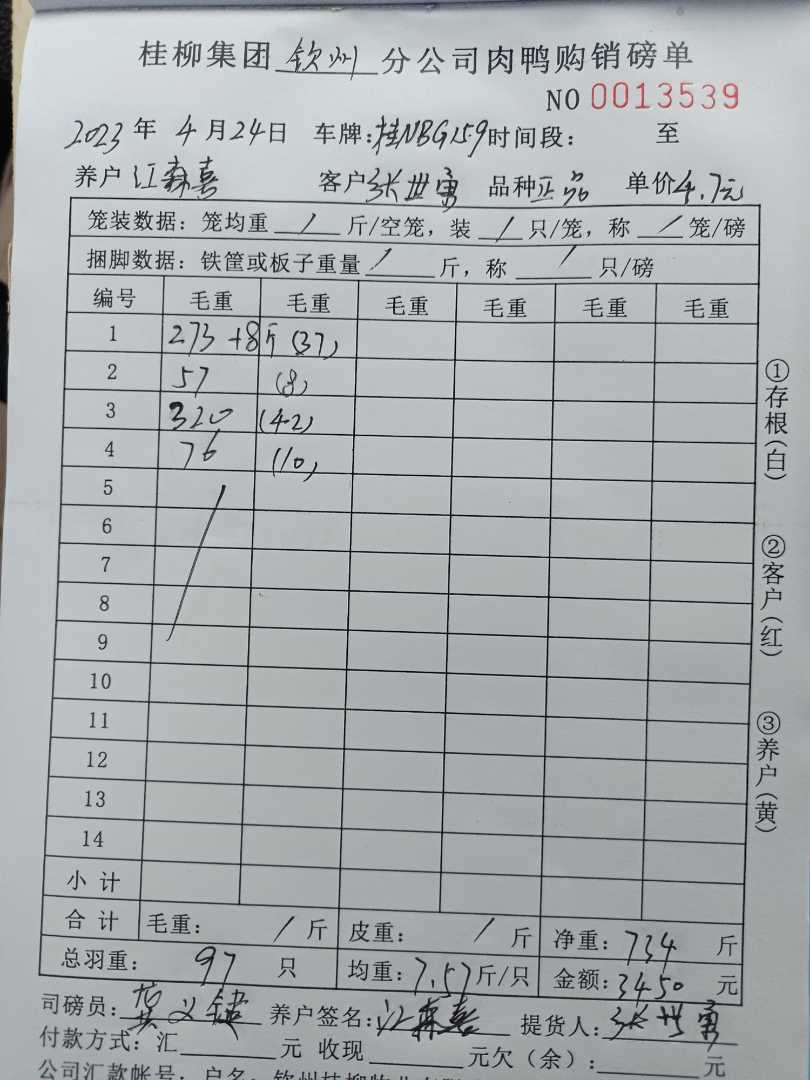 桂柳集团 钦州 分公司肉鸭购销磅单
NO 0013539
2023 年 4 月 24 日 车牌:桂NBG159 时间段: 至
养户 江森喜 客户 张世勇 品种 正品 单价 4.7元
笼装数据: 笼均重 / 斤/空笼, 装 / 只/笼, 称 / 笼/磅
捆脚数据: 铁筐或板子重量 / 斤, 称 / 只/磅
编号 毛重 毛重 毛重 毛重 毛重 毛重
1 273 +8斤 (37)
2 57 (8)
3 320 (42)
4 76 (10)
5
6
7
8
9
10
11
12
13
14
小 计
合 计 毛重: / 斤 皮重: / 斤 净重: 734 斤
总羽重: 97 只 均重: 7.57 斤/只 金额: 3450 元
司磅员: 养户签名: 江森喜 提货人: 张世勇
付款方式: 汇 元 收现 元欠(余): 元
公司汇款帐号: 户名: 钦州桂柳牧业有限
①存根(白)
②客户(红)
③养户(黄)